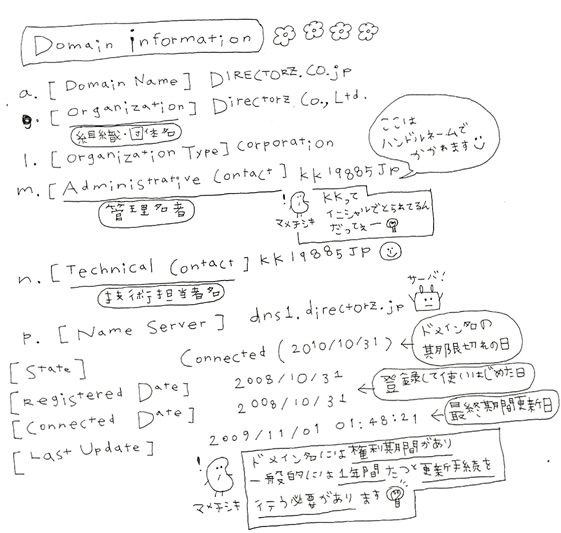 Domain information
a. [Domain Name] DIRECTORZ.CO.jp
g. [Organization] Directorz Co., Ltd.
組織・団体名
l. [Organization Type] Corporation
ここは
ハンドルネームで
かかれます
m. [Administrative Contact] KK19885JP
管理名者
!
マメチシキ
KKって
イニシャルでとられてるん
だってぇー
n. [Technical Contact] KK19885JP
技術担当者名
サーバ!
p. [Name Server] dns1.directorz.jp
[State] Connected (2010/10/31)
ドメイン名の
期限切れの日
[Registered Date] 2008/10/31
登録して使いはじめた日
[Connected Date] 2008/10/31
[Last Update] 2009/11/01 01:48:21
最終期間更新日
!
マメチシキ
ドメイン名には権利期間があり
一般的には1年間たつと更新手続を
行う必要があります